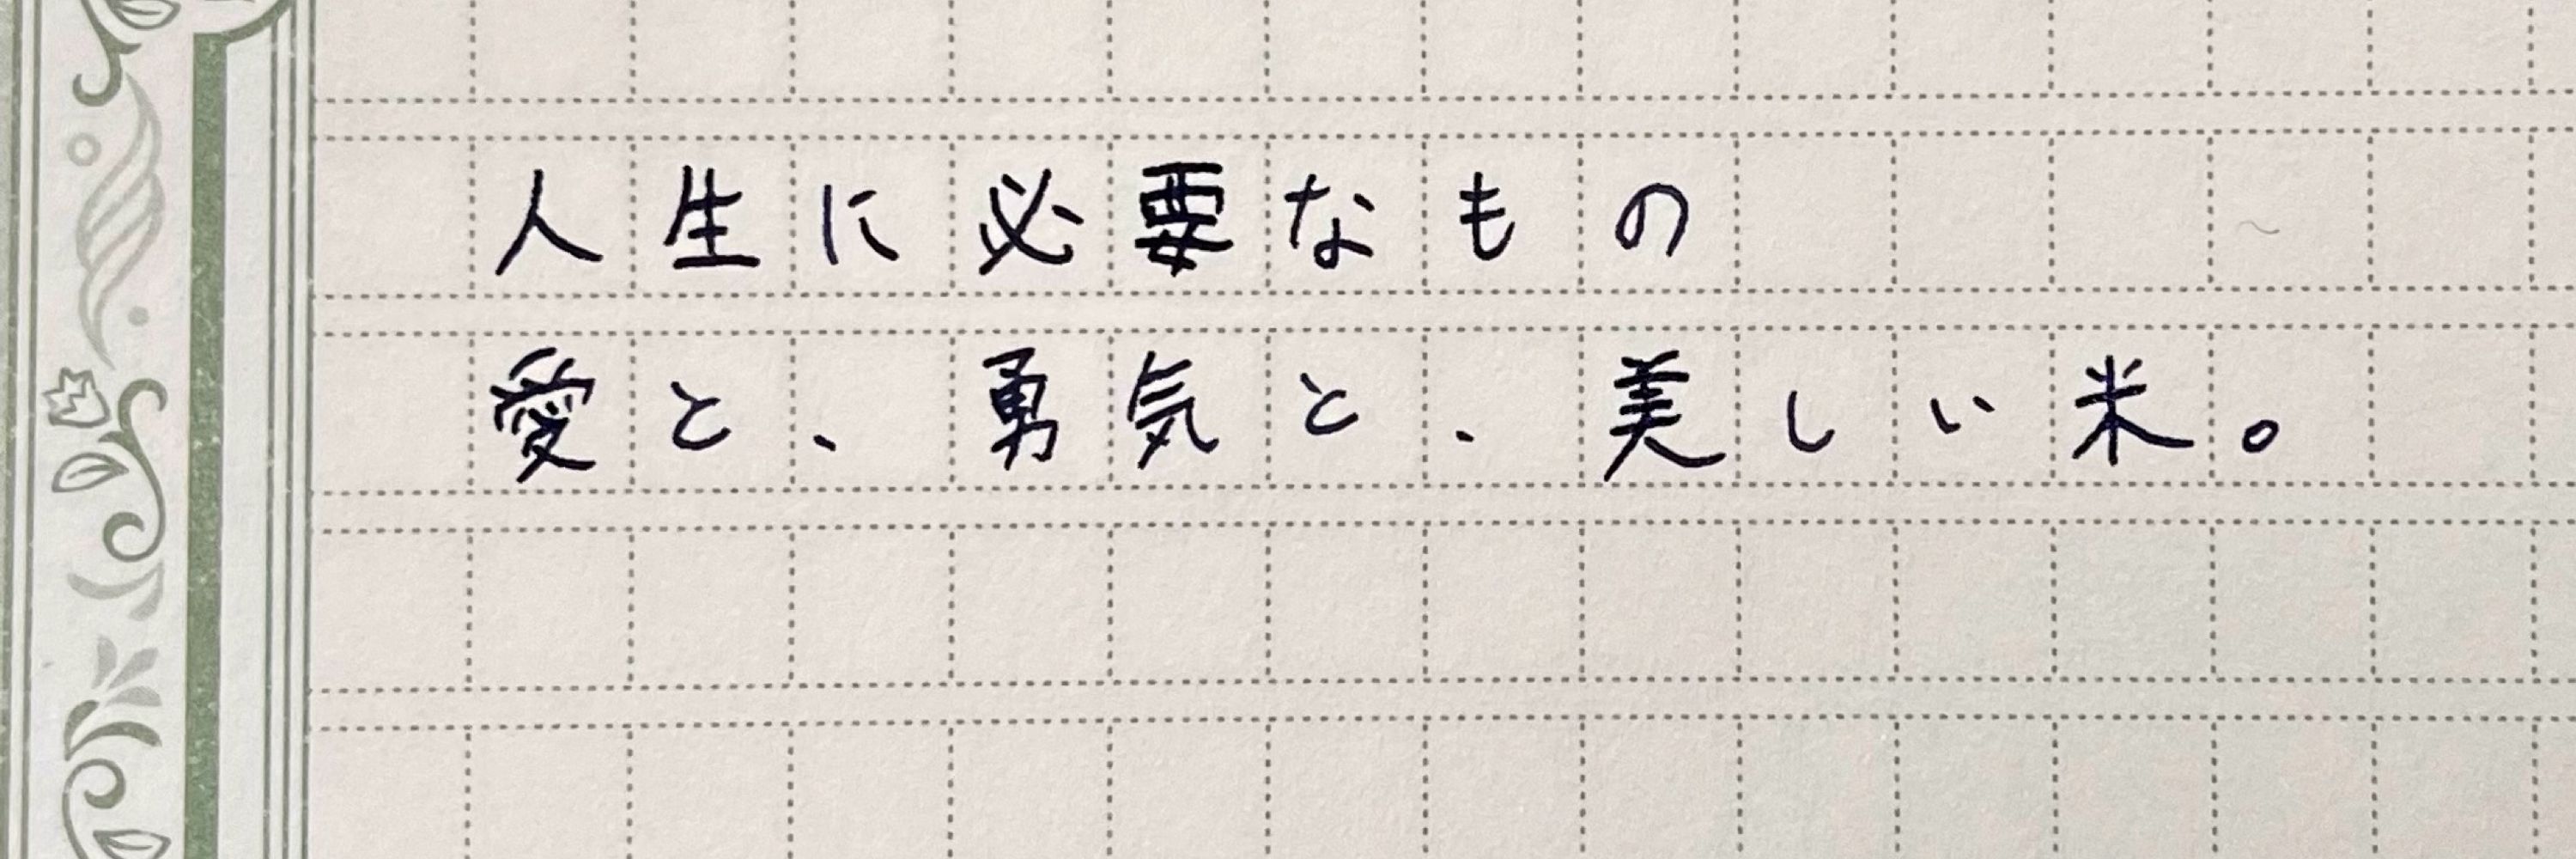 人生に必要なもの
愛と、勇気と、美しい米。